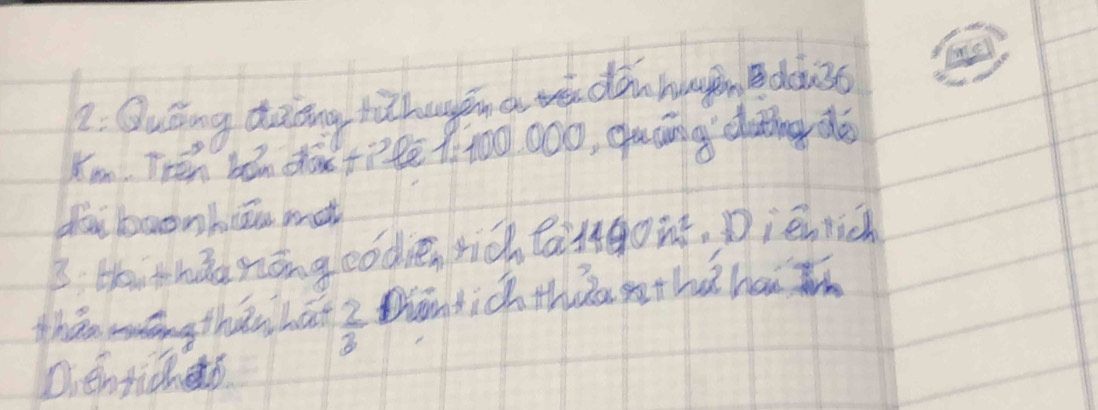 2: Quãng đường từ huyện a đến huyện B dài 36
Km. Trên bản đồ tỉ lệ 1:100.000, quãng đường đó
dài baonhiêu met
3: Hai thửa ruộng có diện tích là m². Diện tích
thửa ruộng thứ nhất 2/3 Diện tích thửa thứ hai Tính
Diện tích